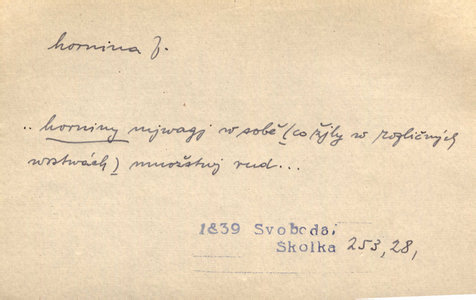 hornina f.
.. horniny mjwagj w sobě (co žjly w rozličných
wrstwách) množstwj rud...
1839 Svoboda,
Školka 253,28,